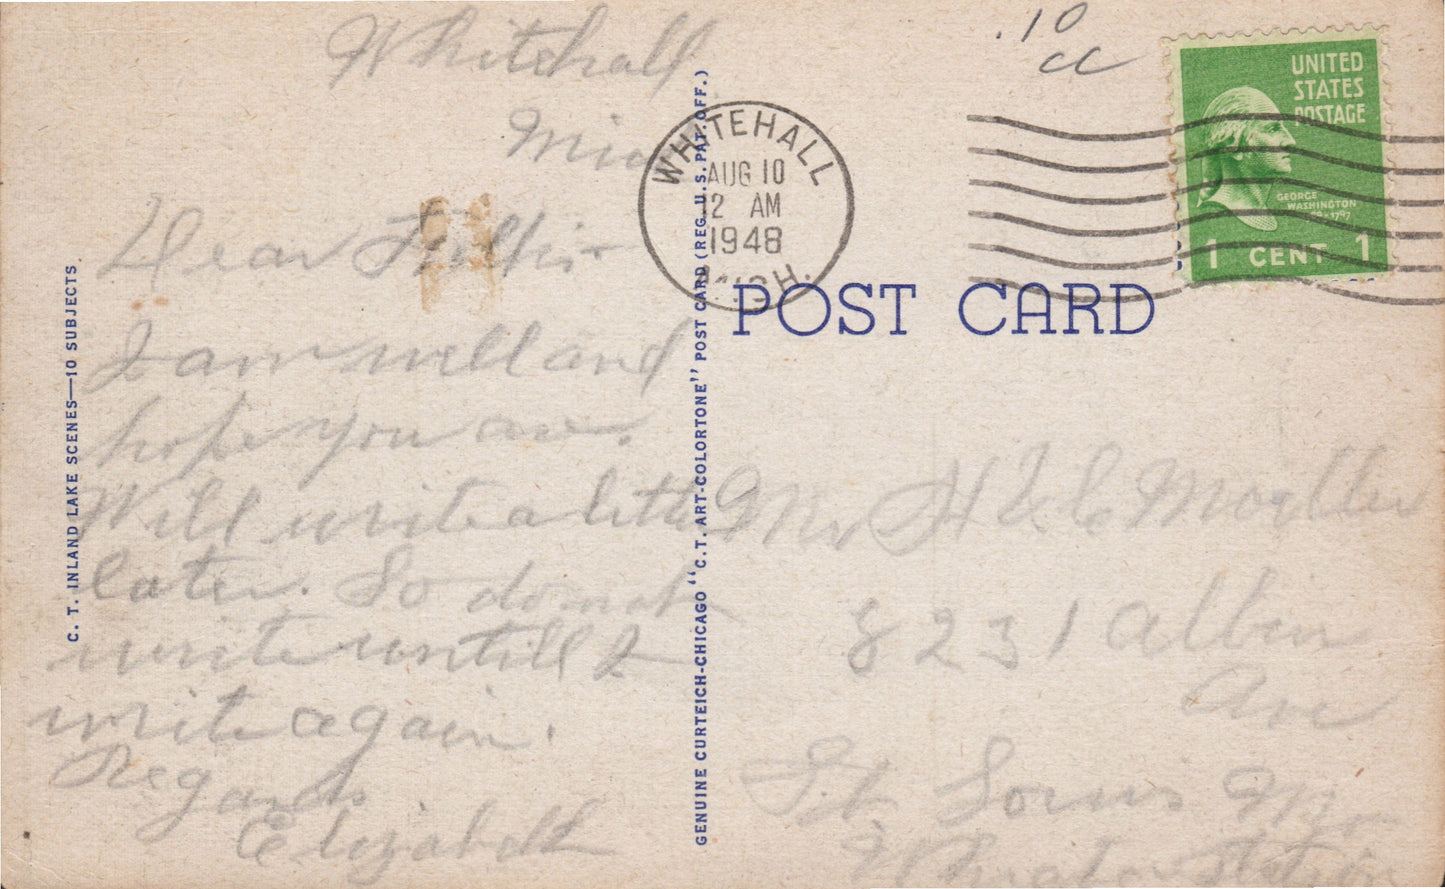 Whitehall
Mic
Dear Folks
I am well and
hope you are.
Will write a letter
later. So do not
write untill I
write again.
Regards
Elizabeth
C. T. INLAND LAKE SCENES—10 SUBJECTS
GENUINE CURTEICH-CHICAGO "C.T. ART-COLORTONE" POST CARD (REG. U.S. PAT. OFF.)
.10
cc
WHITEHALL
AUG 10
12 AM
1948
MICH.
UNITED
STATES
POSTAGE
GEORGE
WASHINGTON
1 CENT 1
POST CARD
Mr H
8231 Albin
Ave
St. Louis Mo
Station